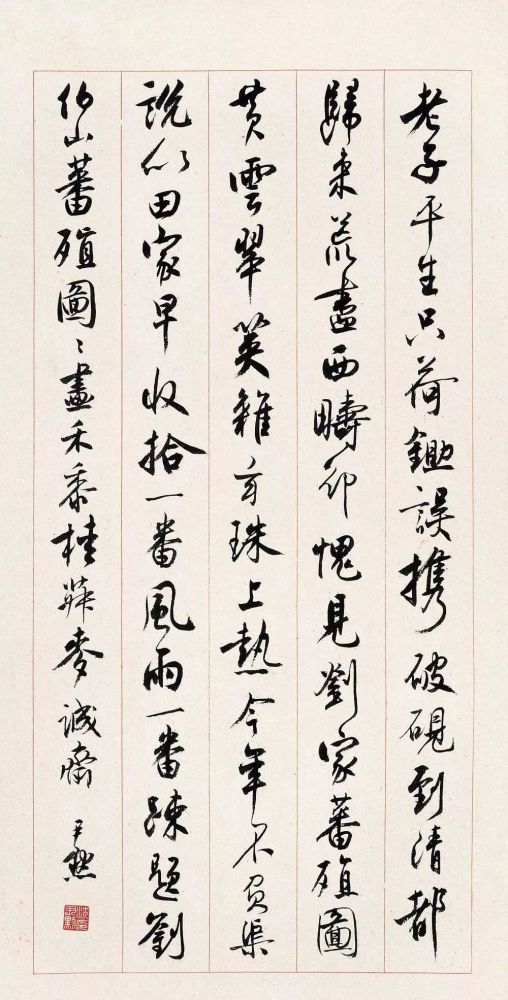 老子平生只荷鋤誤攜破硯到清都
歸來荒盡西疇却愧見劉家蕃殖圖
黃雲翠莢雜玄珠上熱今年不負渠
說似田家早收拾一番風雨一番踈題劉
伯山蕃殖圖〻畫禾黍桂蔴麥誠齋 尹默